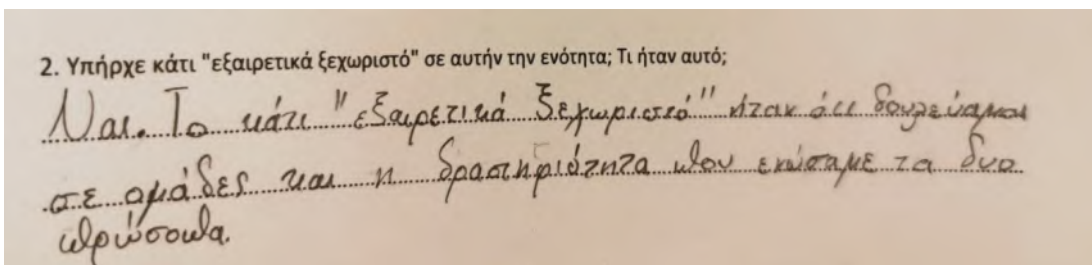 2. Υπήρχε κάτι "εξαιρετικά ξεχωριστό" σε αυτήν την ενότητα; Τι ήταν αυτό;
Ναι. Το κάτι "εξαιρετικά ξεχωριστό" ήταν ότι δουλεύαμαι
σε ομάδες και η δραστηριότητα που ενώσαμε τα δυο
πρώσοπα.